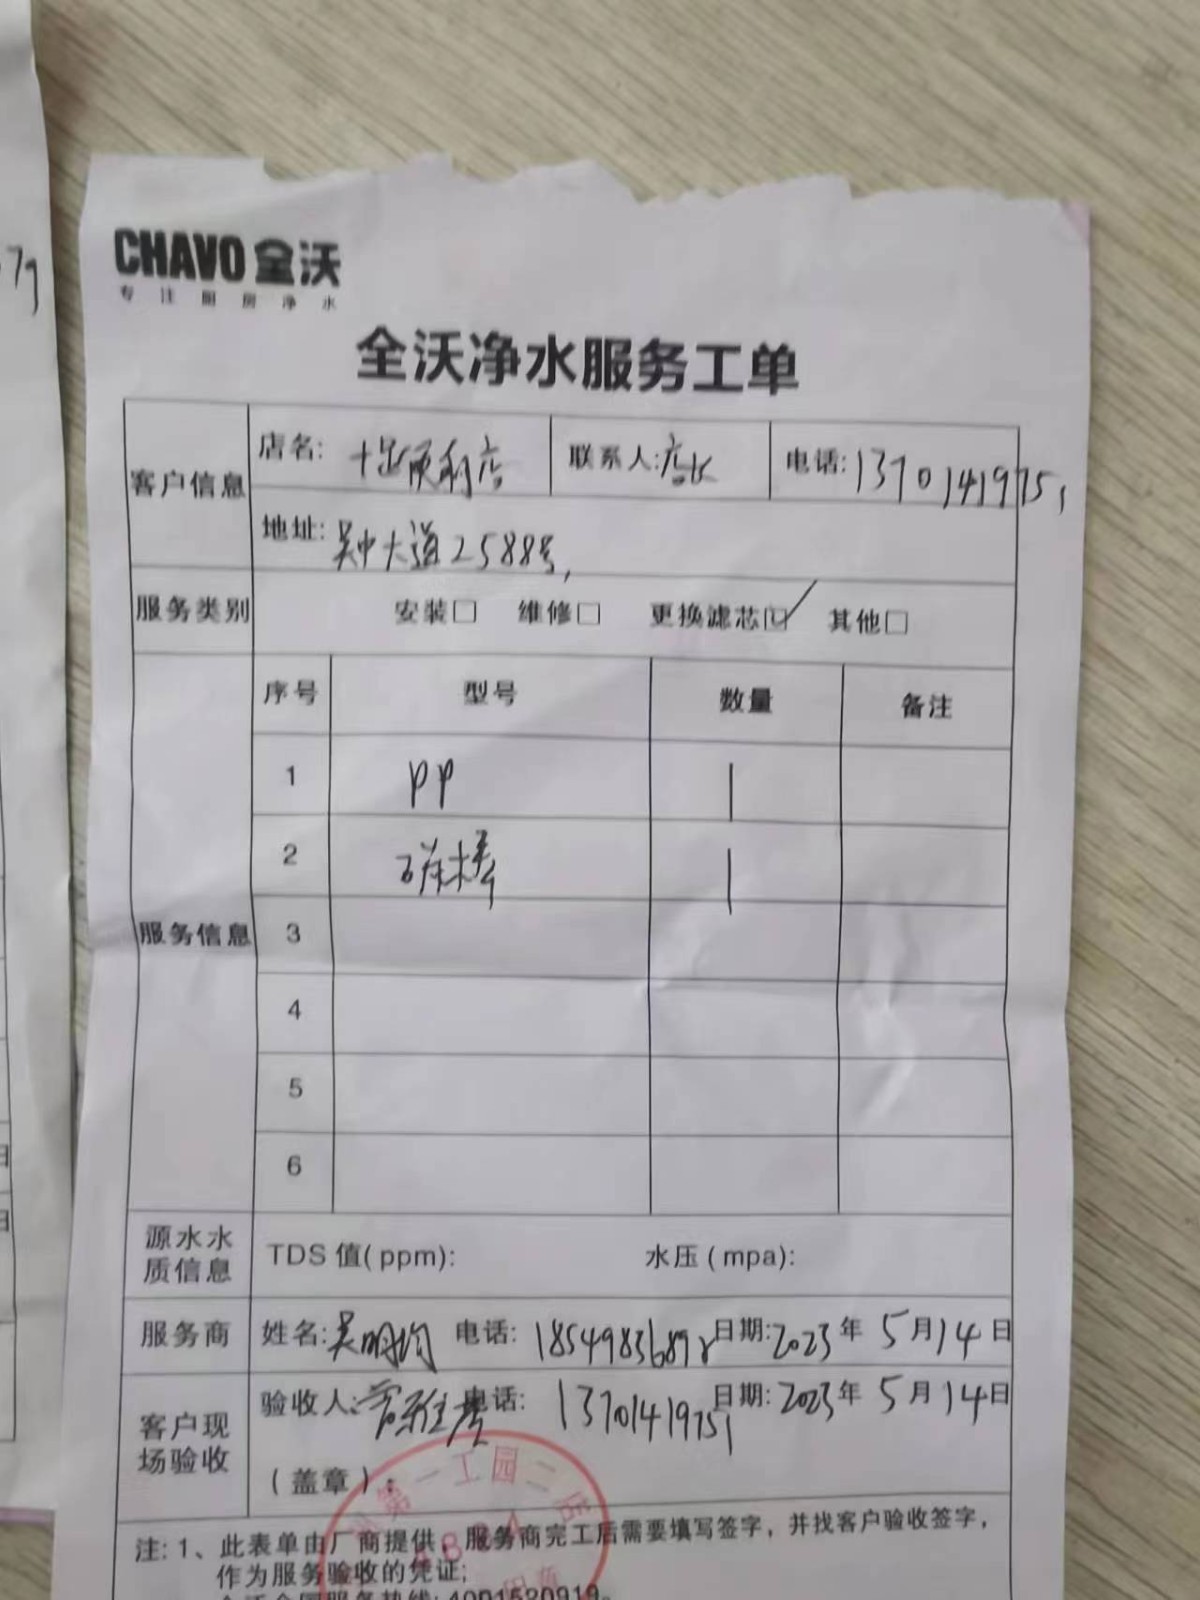 7g
CHAVO 全沃
专注厨房净水
全沃净水服务工单
客户信息
店名: 十足便利店 联系人: 店长 电话: 13701419751
地址: 吴中大道2588号,
服务类别 安装□ 维修□ 更换滤芯☑ 其他□
服务信息
序号 型号 数量 备注
1 PP 1
2 碳棒 1
3
4
5
6
源水水质信息 TDS 值(ppm): 水压(mpa):
服务商 姓名: 吴明均 电话: 18549836898 日期: 2023年 5月14日
客户现场验收 验收人: 电话: 13701419751 日期: 2023年 5月14日
(盖章):
第一工园二店
注: 1、此表单由厂商提供, 服务商完工后需要填写签字, 并找客户验收签字,
作为服务验收的凭证;
全沃全国服务热线: 4001520919。